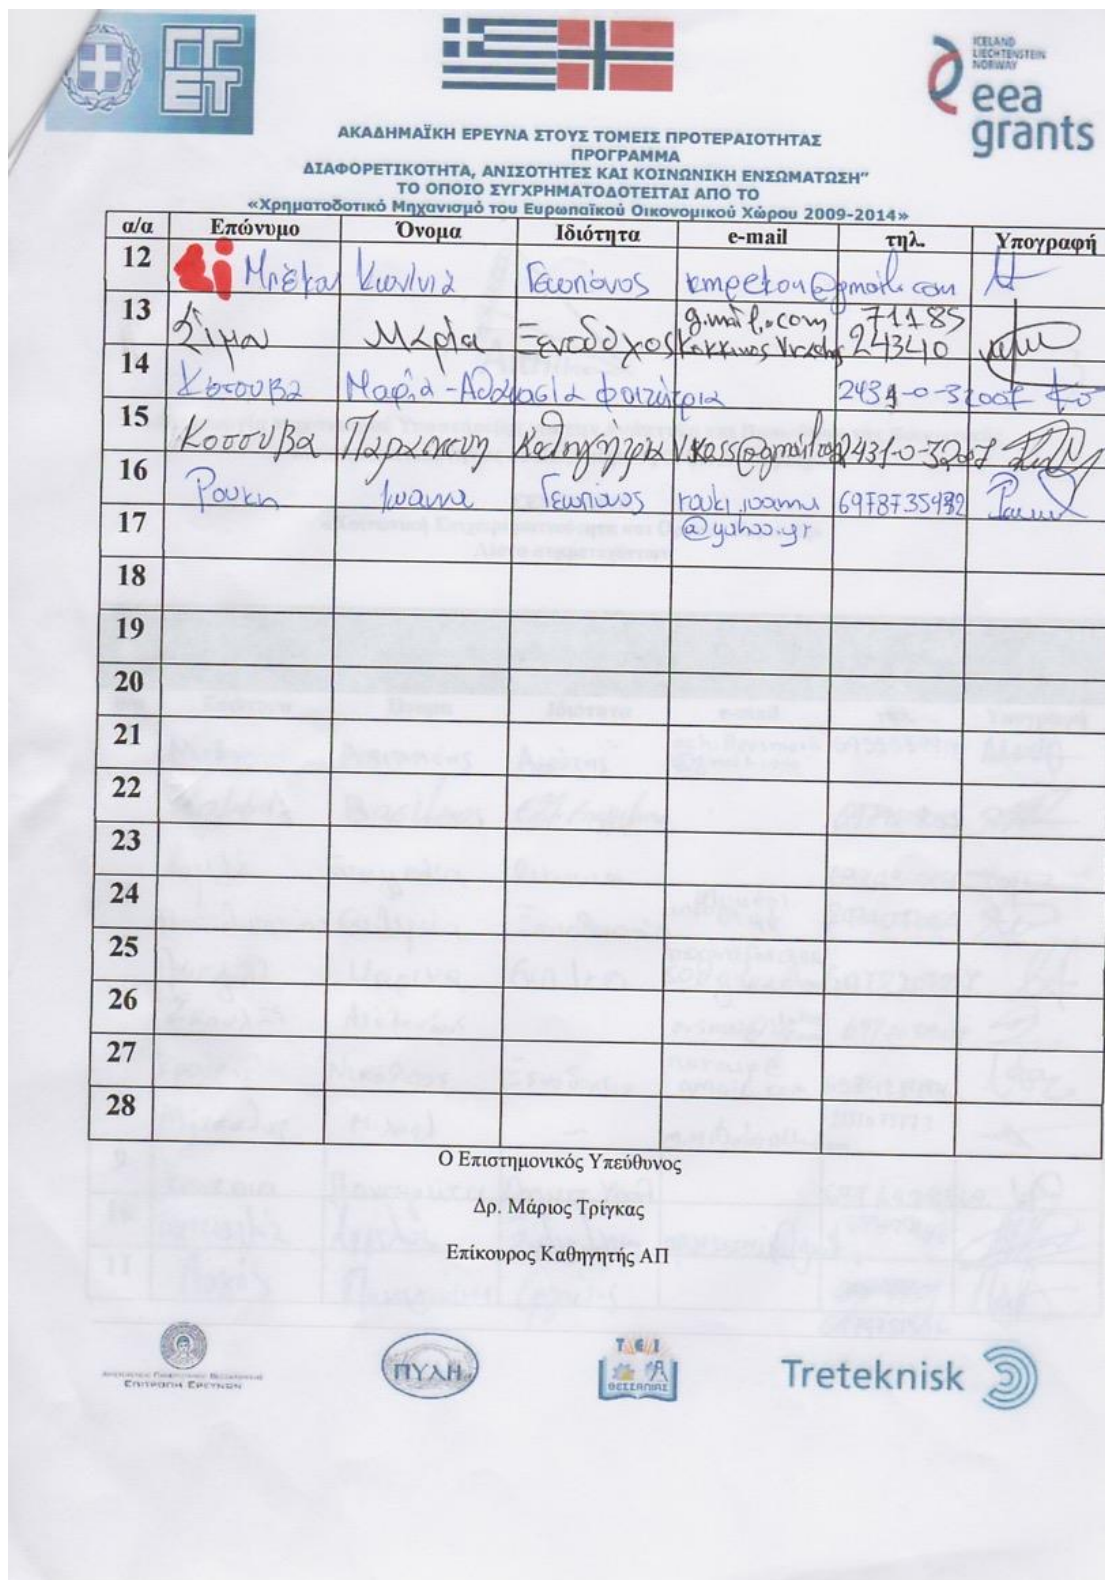 ΓΓ
ΕΤ
ICELAND
LIECHTENSTEIN
NORWAY
eea
grants
ΑΚΑΔΗΜΑΪΚΗ ΕΡΕΥΝΑ ΣΤΟΥΣ ΤΟΜΕΙΣ ΠΡΟΤΕΡΑΙΟΤΗΤΑΣ
ΠΡΟΓΡΑΜΜΑ
ΔΙΑΦΟΡΕΤΙΚΟΤΗΤΑ, ΑΝΙΣΟΤΗΤΕΣ ΚΑΙ ΚΟΙΝΩΝΙΚΗ ΕΝΣΩΜΑΤΩΣΗ”
ΤΟ ΟΠΟΙΟ ΣΥΓΧΡΗΜΑΤΟΔΟΤΕΙΤΑΙ ΑΠΟ ΤΟ
«Χρηματοδοτικό Μηχανισμό του Ευρωπαϊκού Οικονομικού Χώρου 2009-2014»
α/α Επώνυμο Όνομα Ιδιότητα e-mail τηλ. Υπογραφή
12 Μπέκου Κων/νιά Γεωπόνος kmpekou@gmail.com
13 Σίμου Μαρία Ξενοδόχος g.mail.com 71185
24340
14 Κοσουβα Μαρία-Αθανασία φοιτήτρια
15 Κοσουβα Παρασκευη Καθηγήτρια 2431-0-32007
16 Ρουκη Ιωαννα Γεωπόνος rouki.ioanna 6978735932
17 @yahoo.gr
18
19
20
21
22
23
24
25
26
27
28
Ο Επιστημονικός Υπεύθυνος
Δρ. Μάριος Τρίγκας
Επίκουρος Καθηγητής ΑΠ
ΕΠΙΤΡΟΠΗ ΕΡΕΥΝΩΝ
ΠΥΛΗ
Τ Ε Ι
ΘΕΣΣΑΛΙΑΣ
Treteknisk